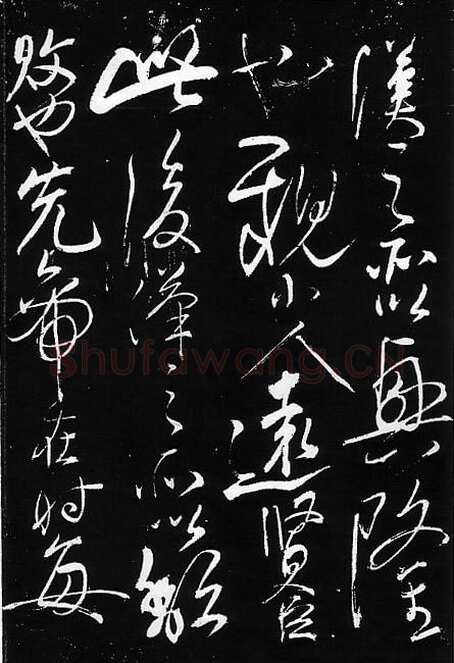 漢之所以興隆
也親小人遠賢臣
此後漢之所以
敗也先帝在時每
Shufawang.cn